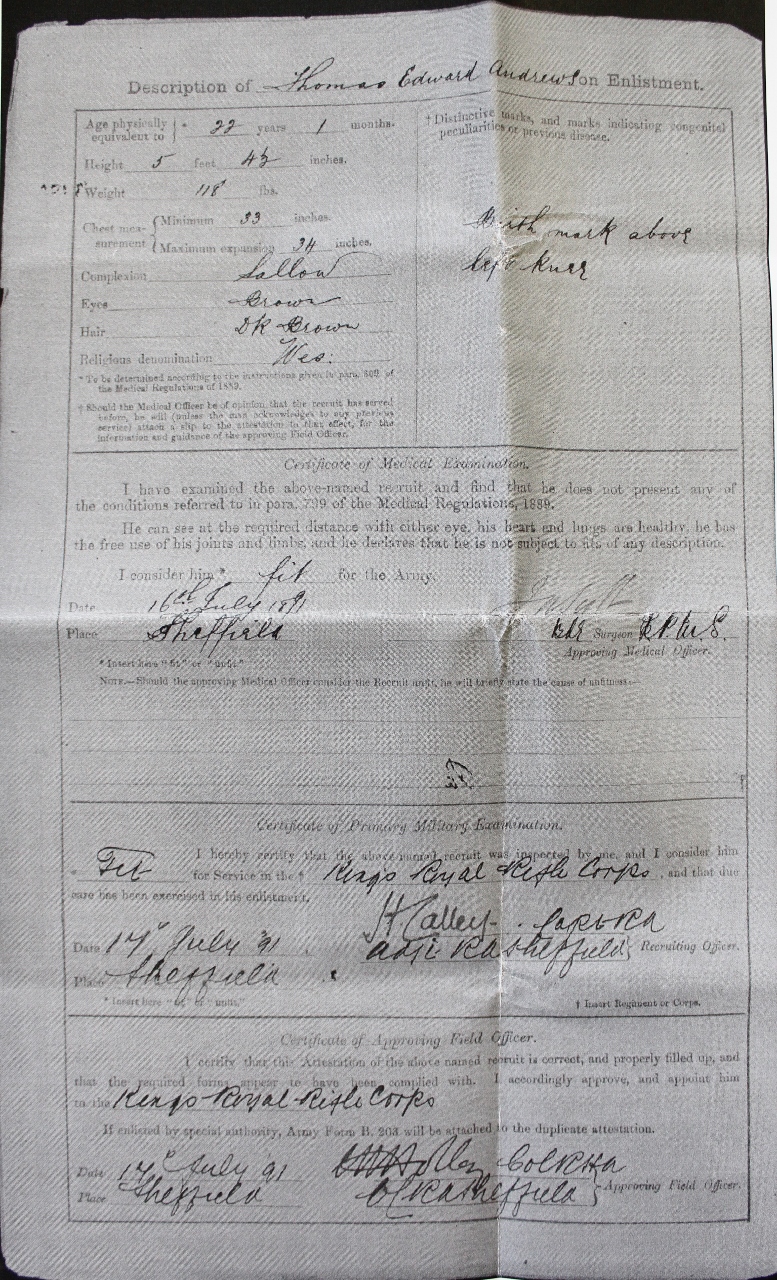 Description of Thomas Edward Andrews on Enlistment.
Age physically equivalent to } * 22 years 1 months.
Height 5 feet 4½ inches.
Weight 118 lbs.
Chest measurement { Minimum 33 inches.
Maximum expansion 34 inches.
Complexion Sallow
Eyes Brown
Hair Dk Brown
Religious denomination Wes:
* To be determined according to the instructions given in para. 802 of
the Medical Regulations of 1889.
† Should the Medical Officer be of opinion that the recruit has served
before, he will (unless the man acknowledges to any previous
service) attach a slip to the attestation to that effect, for the
information and guidance of the approving Field Officer.
† Distinctive marks, and marks indicating congenital
peculiarities or previous disease.
Birth mark above
left knee
Certificate of Medical Examination.
I have examined the above-named recruit and find that he does not present any of
the conditions referred to in para. 799 of the Medical Regulations, 1889.
He can see at the required distance with either eye, his heart and lungs are healthy, he has
the free use of his joints and limbs, and he declares that he is not subject to fits of any description.
I consider him * fit for the Army.
Date 16th July 1891
Place Sheffield
Surgeon
Approving Medical Officer.
* Insert here "fit" or "unfit."
NOTE.—Should the approving Medical Officer consider the Recruit unfit, he will briefly state the cause of unfitness:—
Certificate of Primary Military Examination.
I hereby certify that the above-named recruit was inspected by me, and I consider him
* Fit for Service in the † Kings Royal Rifle Corps, and that due
care has been exercised in his enlistment.
Date 17th July '91
Adjt RA Sheffield } Recruiting Officer.
Place Sheffield
* Insert here "fit" or "unfit."
† Insert Regiment or Corps.
Certificate of Approving Field Officer.
I certify that this Attestation of the above named recruit is correct, and properly filled up, and
that the required forms appear to have been complied with. I accordingly approve, and appoint him
to the Kings Royal Rifle Corps
If enlisted by special authority, Army Form B. 203 will be attached to the duplicate attestation.
Date 17th July '91
Col RHA
Place Sheffield
RA Sheffield } Approving Field Officer.